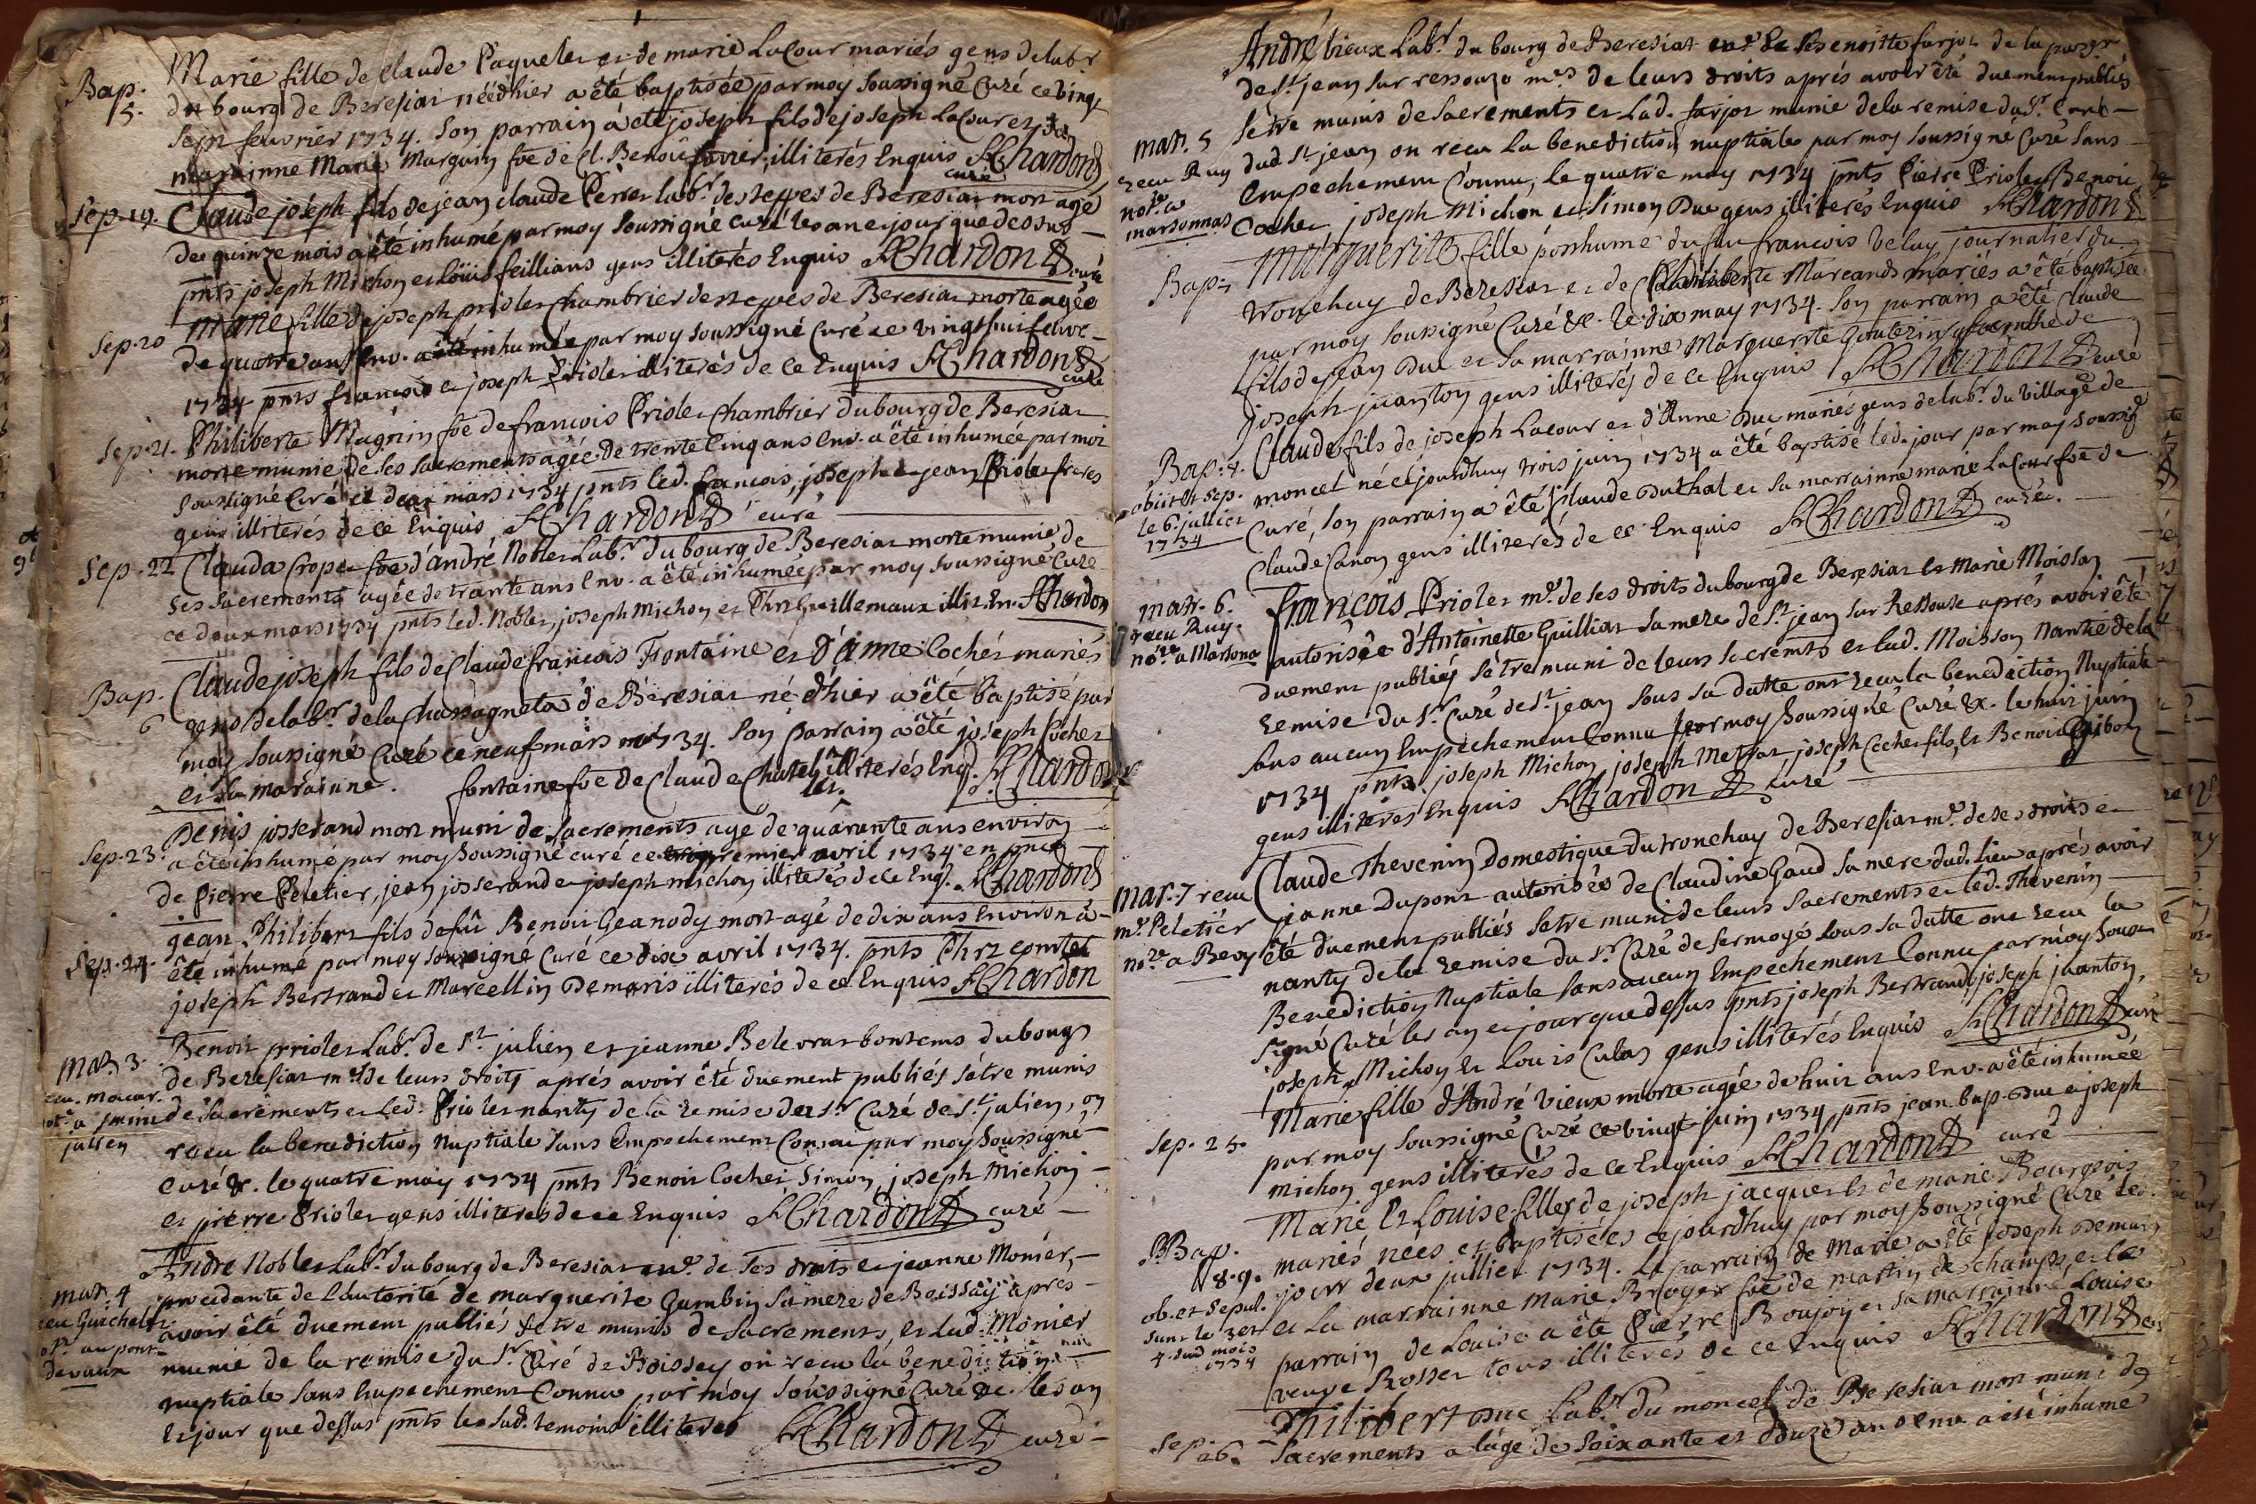 Bap. 5. Marie fille de Claude Paquelet et de marie Lacour mariés gens de labr
du bourg de Beresiat néé d'hier a été baptisée par moy soussigné curé ce vingt
sept feuvrier 1734. son parrain a été joseph fils de joseph Lacour et sa
marrainne Marie Marguin foe de Cl. Benoit favier illiterés Enquis AChardon
curé
Sep. 19. Claude joseph fils de jean claude Perret labr. des teppes de Beresiat mort agé
de quinze mois a été inhumé par moy soussigné curé les an et jour que dessus
pnts joseph Michon et Loüis feillians gens illiterés Enquis AChardon curé
Sep. 20 Marie fille de joseph priolet Chambrier des teppes de Beresiat morte agée
de quatre ans Env. a été inhumée par moy soussigné curé ce vingt huit fevre
1734 pnts francois et joseph Priolet illiterés de ce Enquis AChardon
curé
Sep. 21. Philiberte Magnin foe de francois Priolet Chambrier du bourg de Beresiat
morte munie de ses sacrements agée de trente Cinq ans Env. a été inhumée par moi
soussigné Curé ce deux mars 1734 pnts led. francois, joseph et jean Priolet freres
gens illiterés de ce Enquis AChardon curé
Sep. 22 Clauda Cropet foe d'andré Noblet Labr. du bourg de Beresiat morte munie de
ses sacrements agée de trante ans Env. a été inhumée par moy soussigné Curé
ce deux mars 1734 pnts led. Noblet, joseph Michon et Phrt Guillemaux illit. En. AChardon
Bap. 6 Claude joseph fils de Claude francois Fontaine et d'anne Cochet mariés
gens de labr. de la Chassagneta de Beresiat né d'hier a été baptisé par
moy soussigné Curé ce neuf mars 1734. son parrain a été joseph Cochet
et sa marainne. fontaine foe de Claude Chatelet illiterés Enq. AChardon
Sep. 23. Denis josserand mort muni de sacrements agé de quarante ans environ
a été inhumé par moy soussigné curé ce premier avril 1734 en pnce
de Pierre Peletier, jean josserand et joseph michon illiterés de ce Enq. AChardon
Sep. 24. jean Philibert fils de fû Benoit Geanody mort agé de dix ans Environ a
été inhumé par moy soussigné Curé ce dix avril 1734. pnts Phrt comtet
joseph Bertrand et Marcellin Demaris illiterés de ce Enquis AChardon
Mar. 3. Benoit priolet Labr. de St. julien et jeanne Beletvrat bontems du bourg
de Beresiat mes de leurs droits aprés avoir été duement publiés s'étre munis
de sacrements et led. Priolet nanty de la remise de sr. Curé de St. julien, on
recu la benediction Nuptiale sans Empechement Connu par moy soussigné
Curé &. le quatre may 1734 pnts Benoit Cochet Simon, joseph Michon
et pierre Priolet gens illiterés de ce Enquis AChardon curé
mar. 4 Andre Noblet Labr. du bourg de Beresiat me. de ses droits et jeanne Monier,
procedante de Lautorité de marguerite Gambin sa mere de Boissey apres
avoir été duement publiés s'etre munis de sacrements, et lad. Monier
munie de la remise du sr. Curé de Boissey on recu la benediction
nuptiale sans Empechement Connu par moy soussigné Curé &c. les an
et jour que dessus pnts les sud. temoins illiteres AChardon curé
André Vieux Labr. du bourg de Beresiat me. de ses Benoitte farjot de la par.
de St. jean sur ressouze mes de leurs droits aprés avoir été duement publiés
mar. 5 s'étre munis de sacrements et Lad. farjot munie de la remise du sr. Curé
recu Ruy dud. St. jean on recu la benediction nuptiale par moy soussigné Curé sans
notre. a Empechement Connu, le quatre may 1734 pnts Pierre Priolet Benoit
marsonnas Cochet joseph Michon et Simon Duc gens illiterés Enquis AChardon
Bap. 7 Marguerite fille posthume du feu francois Velay journalier du
tronchay de Beresiat et de Philiberte Marcand mariés a été baptisée
par moy soussigné Curé &c. le dix may 1734. son parrain a été Claude
fils de jean Duc et sa marrainne Marguerite
joseph juanton gens illiterés de ce Enquis AChardon curé
Bap. 7. Claude fils de joseph Lacour et d'Anne Duc mariés gens de labr. du village de
obiit et sep. moncet né cejourdhuy trois juin 1734 a été baptisé led. jour par moy soussigné
le 6. juillet Curé, son parrain a été Claude Duthat et sa marrainne marie Lacour foe de
1734 Claude Canon gens illiterés de ce Enquis AChardon curé.
mar. 6. francois Priolet me. de ses droits du bourg de Beresiat et Marie Moisson
recu Ruy. autorisée d'Antoinette Guilliat sa mere de St. jean sur Ressouse aprés avoir été
nore. a Marsona duement publiés s'étre muni de leurs sacremts et lad. Moisson Nantie de la
remise du sr. Curé de St. jean sous sa datte ont recu la benediction Nuptiale
sans aucun Empechement Connu par moy soussigné Curé &c. le huit juin
1734 pnts. joseph Michon, joseph Mettrat joseph Cochet fils, et Benoit Gribon
gens illiterés Enquis AChardon curé
Mar. 7 recu Claude Thevenin Domestique du tronchay de Beresiat me. de ses droits et
mr. Peletier jeanne Dupont autorisée de Claudine Gaud sa mere dud. lieu aprés avoir
nore. a Bevy été duement publiés s'etre muni de leurs sacrements et led. Thevenin
nanty de la remise du sr. Curé de sermoyé sous sa datte ont recu la
Benediction Nuptiale sans aucun Empechement Connu par moy sous
signé Curé les an et jour que dessus pnts joseph Bertrand, joseph juanton,
joseph Michon et Louis Culas gens illiterés Enquis AChardon curé
Sep. 25. Marie fille d'André Vieux morte agée de huit ans Env. a été inhumée
par moy soussigné Curé ce vingt juin 1734 pnts jean bap. Duc et joseph
michon gens illiterés de ce Enquis AChardon curé
Bap. 8.9. Marie Et Louise filles de joseph jacquet et de marie Bourgeois
mariés néés et baptisées cejourdhuy par moy soussigné Curé led.
ob. et sepul. jour deux juillet 1734. Le parrain de Marie a été joseph Demaris
sunt le 3 et et La marrainne Marie Broyer foe de martin de champs, et le
4. dud mois parrain de Louise a été Pierre Boujon et sa marrainne Louise
1734 veuve Rosset tous illiterés de ce Enquis AChardon curé
Sep. 26. Philibert Duc Labr. du moncet de Beresiat mort muni de
sacrements a lágé de soixante et douze ans env. a été inhumé